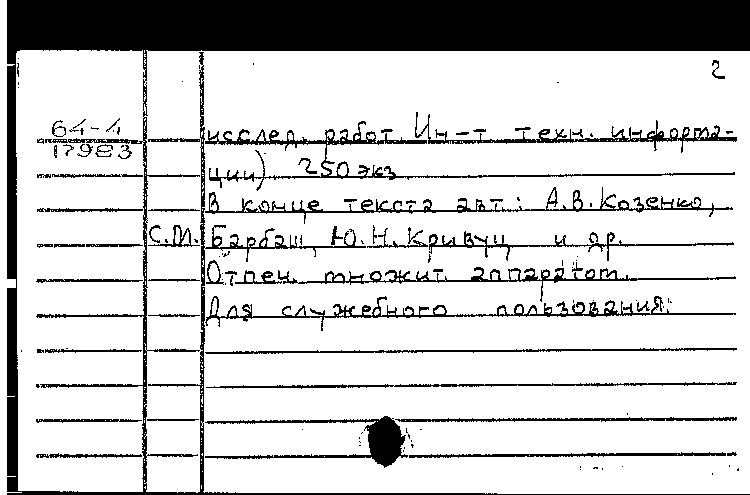 2
64-4
17983
исслед. работ. Ин-т техн. информа-
ции) 250 экз.
В конце текста авт.: А.В. Козенко,
С.М. Барбаш, Ю.Н. Кривуц и др.
Отпеч. множит. аппаратом.
Для служебного пользования.